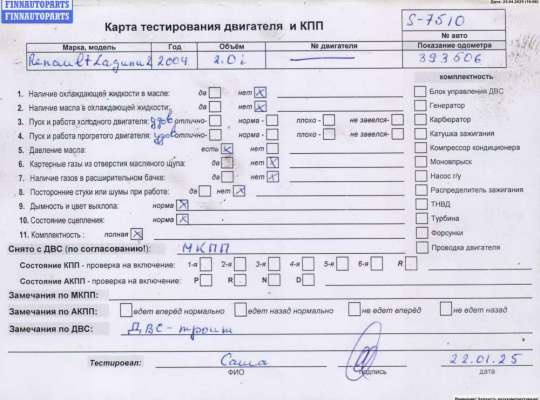 FINNAUTOPARTS
FINNAUTOPARTS
Карта тестирования двигателя и КПП
S-7510
№ авто
Марка, модель Год Объём № двигателя Показание одометра
Renault Laguna 2 2004 2.0i 393506
комплектность
1. Наличие охлаждающей жидкости в масле: да нет x
2. Наличие масла в охлаждающей жидкости: да нет x
3. Пуск и работа холодного двигателя: удов отлично- норма - плохо - не завелся-
4. Пуск и работа прогретого двигателя: удов отлично- норма - плохо - не завелся-
5. Давление масла: есть x нет
6. Картерные газы из отверстия масляного щупа: да нет x
7. Наличие газов в расширительном бачке: да нет x
8. Посторонние стуки или шумы при работе: да нет x
9. Дымность и цвет выхлопа: норма x
10. Состояние сцепления: норма x
11. Комплектность : полная x
Блок управления ДВС
Генератор
Карбюратор
Катушка зажигания
Компрессор кондиционера
Моновпрыск
Насос г/у
Распределитель зажигания
ТНВД
Турбина
Форсунки
Проводка двигателя
Снято с ДВС (по согласованию!): МКПП
Состояние КПП - проверка на включение: 1-я 2-я 3-я 4-я 5-я 6-я R
Состояние АКПП - проверка на включение: P R N D
Замечания по МКПП:
Замечания по АКПП: едет вперёд нормально едет назад нормально не едет вперёд не едет назад
Замечания по ДВС: ДВС - троит
Тестировал: Саша 22.01.25
ФИО подпись дата